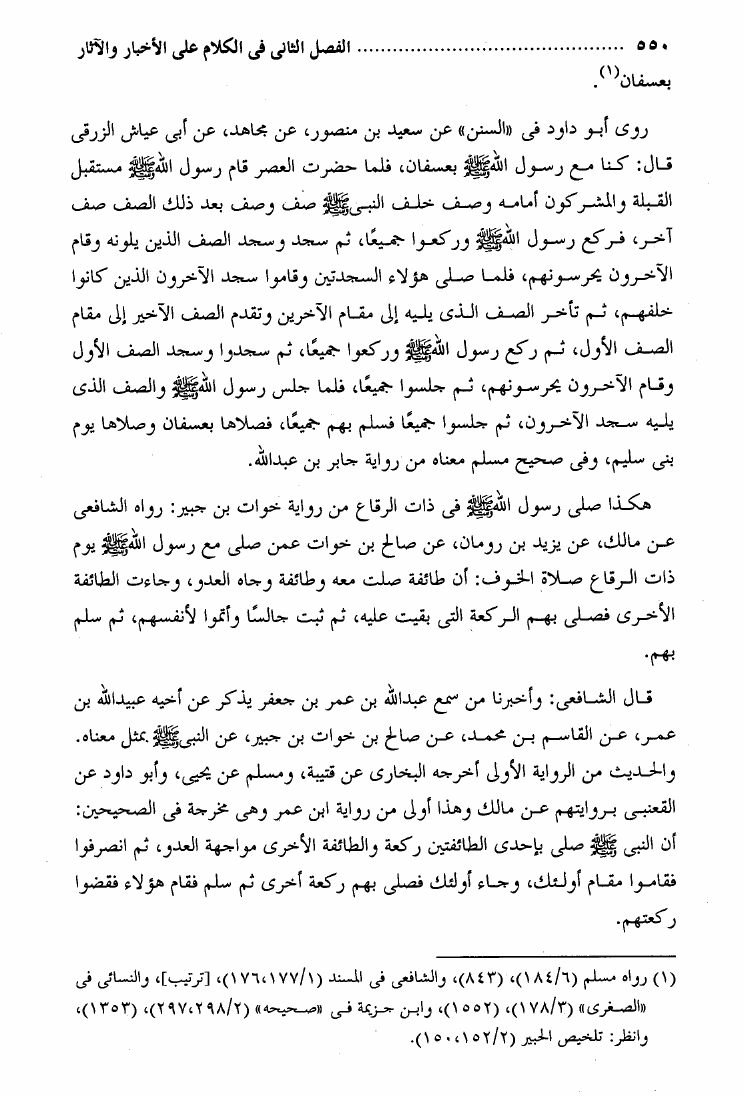 ٥٥٠ ............................................. الفصل الثانى فى الكلام على الأخبار والآثار
بعسفان(١).
روى أبو داود فى «السنن» عن سعيد بن منصور، عن مجاهد، عن أبى عياش الزرقى
قال: كنا مع رسول اللهﷺ بعسفان، فلما حضرت العصر قام رسول اللهﷺ مستقبل
القبلة والمشركون أمامه وصف خلف النبىﷺ صف وصف بعد ذلك الصف صف
آخر، فركع رسول اللهﷺ وركعوا جميعًا، ثم سجد وسجد الصف الذين يلونه وقام
الآخرون يحرسونهم، فلما صلى هؤلاء السجدتين وقاموا سجد الآخرون الذين كانوا
خلفهم، ثم تأخر الصف الذى يليه إلى مقام الآخرين وتقدم الصف الأخير إلى مقام
الصف الأول، ثم ركع رسول اللهﷺ وركعوا جميعًا، ثم سجدوا وسجد الصف الأول
وقام الآخرون يحرسونهم، ثم جلسوا جميعًا، فلما جلس رسول اللهﷺ والصف الذى
يليه سجد الآخرون، ثم جلسوا جميعًا فسلم بهم جميعًا، فصلاها بعسفان وصلاها يوم
بنى سليم، وفى صحيح مسلم معناه من رواية جابر بن عبدالله.
هكذا صلى رسول اللهﷺ فى ذات الرقاع من رواية خوات بن جبير: رواه الشافعى
عن مالك، عن يزيد بن رومان، عن صالح بن خوات عمن صلى مع رسول اللهﷺ يوم
ذات الرقاع صلاة الخوف: أن طائفة صلت معه وطائفة وجاه العدو، وجاءت الطائفة
الأخرى فصلى بهم الركعة التى بقيت عليه، ثم ثبت جالسًا وأتموا لأنفسهم، ثم سلم
بهم.
قال الشافعى: وأخبرنا من سمع عبدالله بن عمر بن جعفر يذكر عن أخيه عبيدالله بن
عمر، عن القاسم بن محمد، عن صالح بن خوات بن جبير، عن النبىﷺ بمثل معناه.
والحديث من الرواية الأولى أخرجه البخارى عن قتيبة، ومسلم عن يحيى، وأبو داود عن
القعنبى بروايتهم عن مالك وهذا أولى من رواية ابن عمر وهى مخرجة فى الصحيحين:
أن النبى ﷺ صلى بإحدى الطائفتين ركعة والطائفة الأخرى مواجهة العدو، ثم انصرفوا
فقاموا مقام أولئك، وجاء أولئك فصلى بهم ركعة أخرى ثم سلم فقام هؤلاء فقضوا
ركعتهم.
(١) رواه مسلم (١٨٤/٦)، (٨٤٣)، والشافعى فى المسند (١٧٦،١٧٧/١)، [ترتيب]، والنسائى فى
«الصغرى» (١٧٨/٣)، (١٥٥٢)، وابن خزيمة فى «صحيحه» (٢٩٧،٢٩٨/٢)، (١٣٥٣)،
وانظر: تلخيص الحبير (١٥٠،١٥٢/٢).